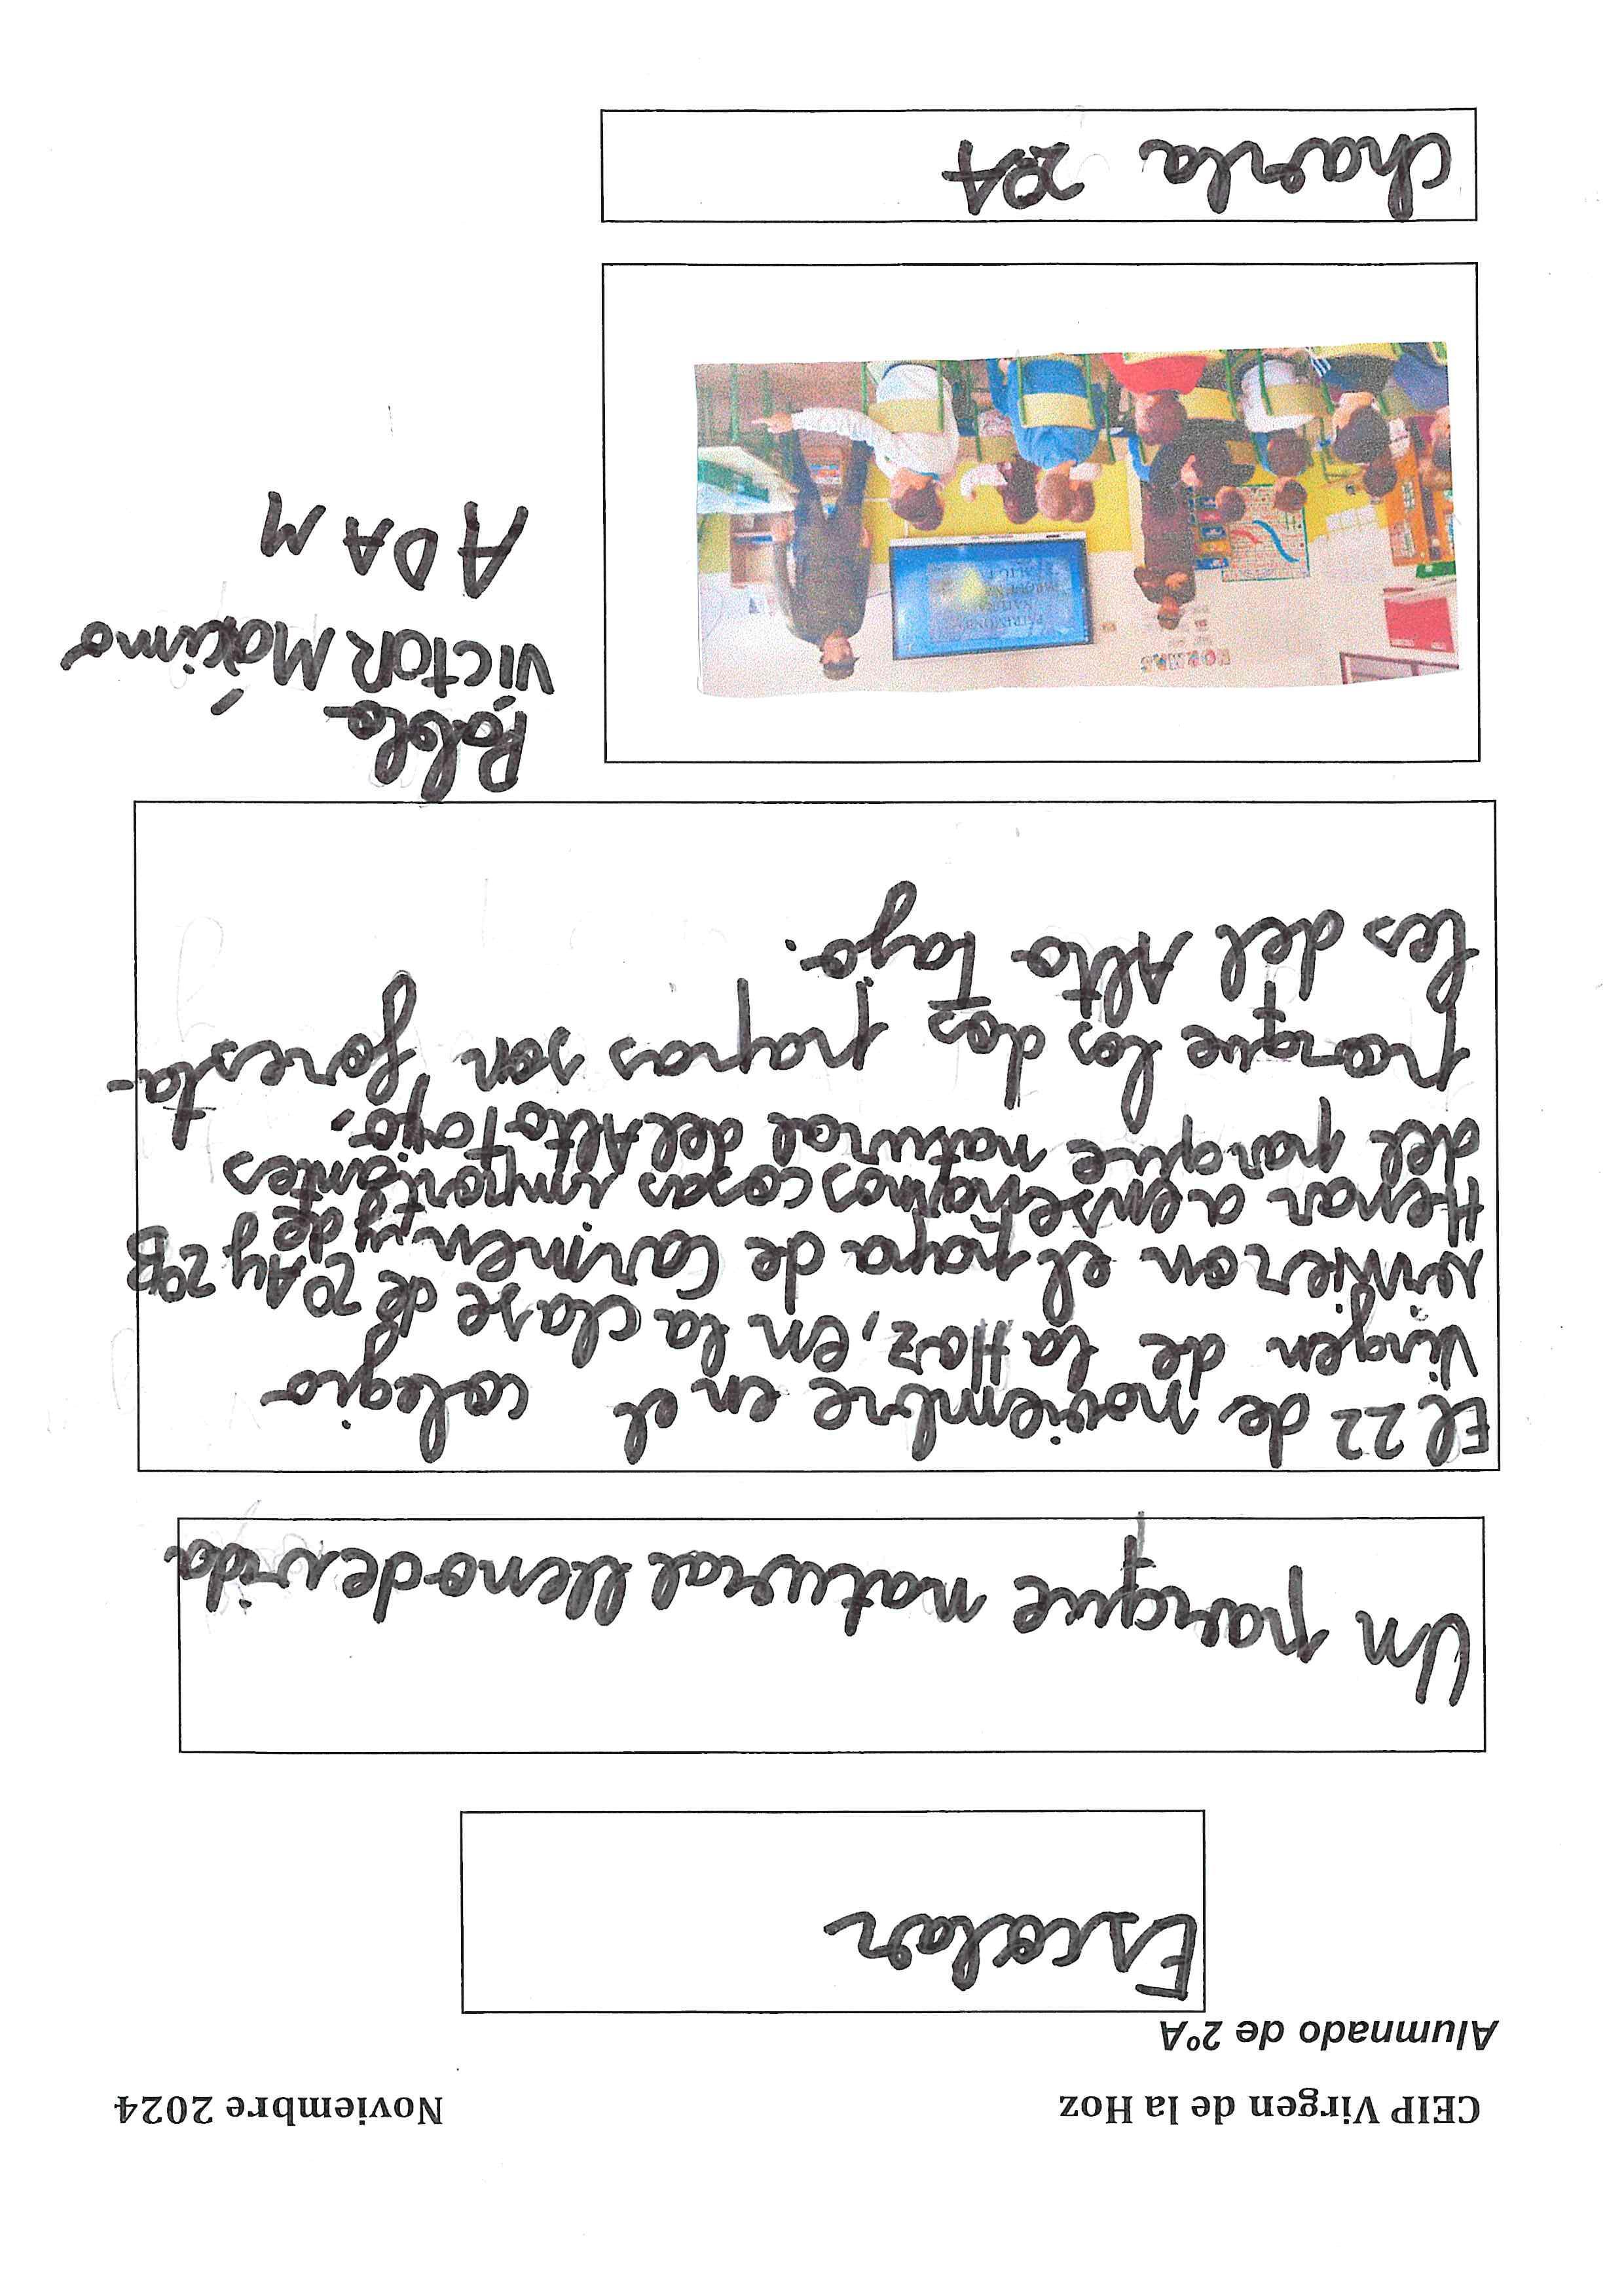 CEIP Virgen de la Hoz Noviembre 2024
Alumnado de 2ºA
Escolar
Un parque natural lleno de vida
El 22 de noviembre en el colegio
Virgen de la Hoz, en la clase de 2ºA y 2ºB
vinieron el papa de Carmen y de
Henar a enseñarnos cosas importantes
del parque natural del Alto Tajo,
porque los dos papas son foresta-
les del Alto Tajo.
Pablo
VICTOR Máximo
ADAM
NORMAS
PATRIMONIO
NATURAL
charla 2ºA